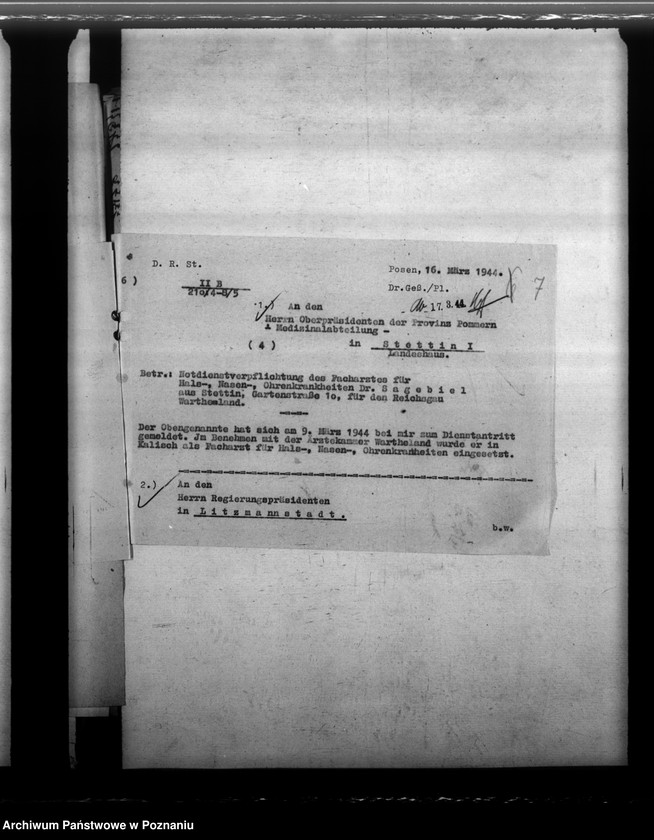 D. R. St.
Posen, 16. März 1944.
7
6)
II B
210/4-8/5
Dr.Geß./Pl.
ab 17.3.44
1.) An den
Herrn Oberpräsidenten der Provinz Pommern
- Medizinalabteilung -
(4)
in Stettin I
Landeshaus.
Betr.: Notdienstverpflichtung des Facharztes für
Hals-, Nasen-, Ohrenkrankheiten Dr. Sagebiel
aus Stettin, Gartenstraße 10, für den Reichsgau
Wartheland.
Der Obengenannte hat sich am 9. März 1944 bei mir zum Dienstantritt
gemeldet. Jm Benehmen mit der Ärztekammer Wartheland wurde er in
Kalisch als Facharzt für Hals-, Nasen-, Ohrenkrankheiten eingesetzt.
2.) An den
Herrn Regierungspräsidenten
in Litzmannstadt.
b.w.
Archiwum Państwowe w Poznaniu